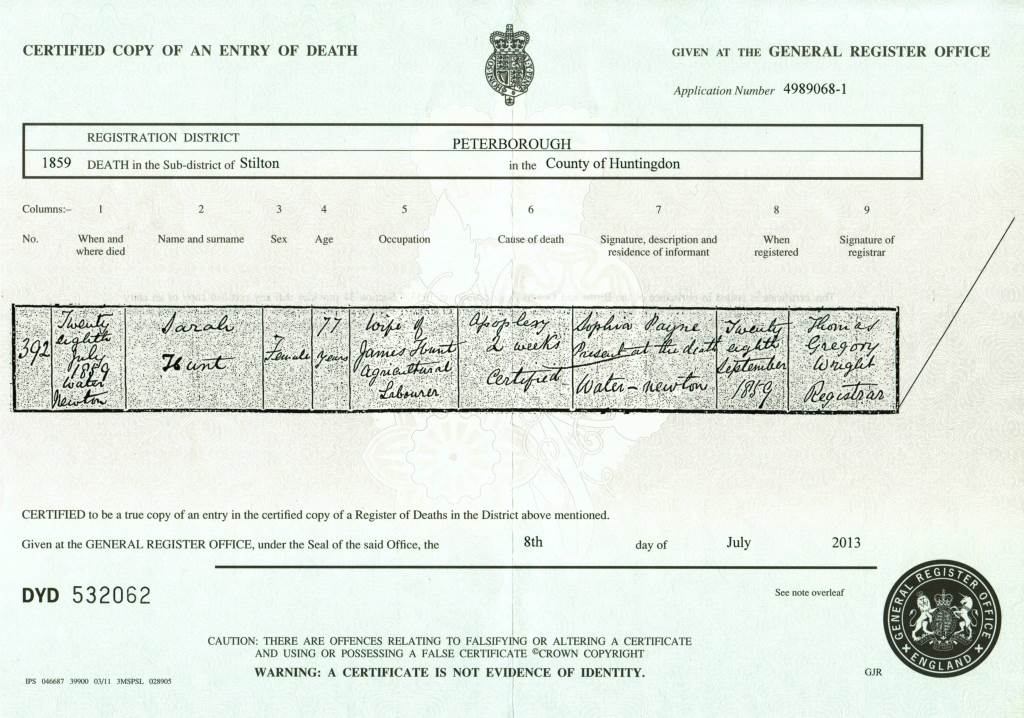 CERTIFIED COPY OF AN ENTRY OF DEATH
GIVEN AT THE GENERAL REGISTER OFFICE
Application Number 4989068-1
REGISTRATION DISTRICT
PETERBOROUGH
1859 DEATH in the Sub-district of Stilton in the County of Huntingdon
Columns:– 1 2 3 4 5 6 7 8 9
No. When and where died Name and surname Sex Age Occupation Cause of death Signature, description and residence of informant When registered Signature of registrar
392
Twenty
eighth
July
1859
Water
Newton
Sarah
Hunt
Female
77
years
Wife of
James Hunt
Agricultural
Labourer
Apoplexy
2 weeks
Certified
Sophia Payne
Present at the death
Water-newton
Twenty
eighth
September
1859
Thomas
Gregory
Wright
Registrar
CERTIFIED to be a true copy of an entry in the certified copy of a Register of Deaths in the District above mentioned.
Given at the GENERAL REGISTER OFFICE, under the Seal of the said Office, the 8th day of July 2013
DYD 532062
See note overleaf
CAUTION: THERE ARE OFFENCES RELATING TO FALSIFYING OR ALTERING A CERTIFICATE
AND USING OR POSSESSING A FALSE CERTIFICATE ©CROWN COPYRIGHT
WARNING: A CERTIFICATE IS NOT EVIDENCE OF IDENTITY.
GENERAL REGISTER OFFICE
ENGLAND
GJR
IPS 046687 39900 03/11 3MSPSL 028905